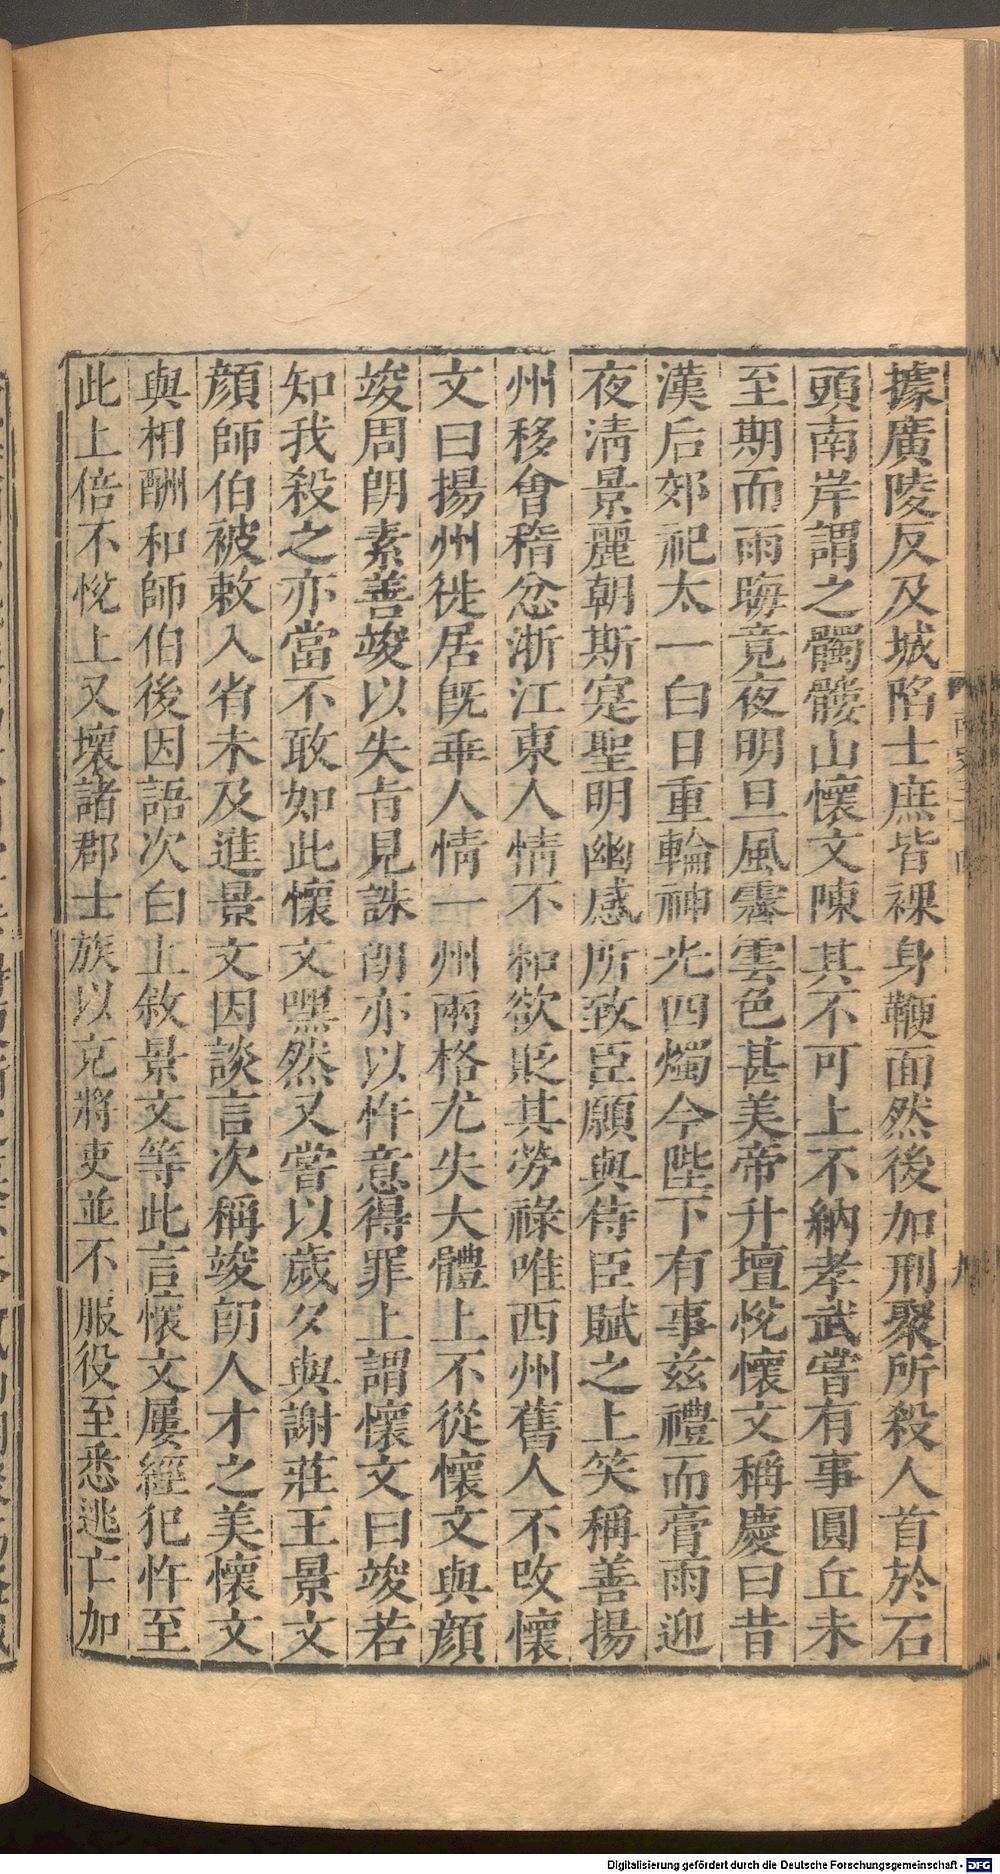 據廣陵反及城陷士庶皆裸身鞭面然後加刑聚所殺人首於石
頭南岸謂之髑髏山懷文陳其不可上不納孝武嘗有事圓丘未
至期而雨晦竟夜明旦風霽雲色甚美帝升壇悅懷文稱慶曰昔
漢后郊祀太一白日重輪神光四燭今陛下有事兹禮而膏雨迎
夜清景麗朝斯寔聖明幽感所致臣願與侍臣賦之上笑稱善揚
州移會稽忿浙江東人情不和欲貶其勞祿唯西州舊人不改懷
文曰揚州徙居既乖人情一州兩格尤失大體上不從懷文與顏
竣周朗素善竣以失旨見誅朗亦以忤意得罪上謂懷文曰竣若
知我殺之亦當不敢如此懷文嘿然又嘗以歲夕與謝莊王景文
顏師伯被敕入省未及進景文因談言次稱竣朗人才之美懷文
與相酬和師伯後因語次白上敘景文等此言懷文屢經犯忤至
此上倍不悅上又壞諸郡士族以充將吏並不服役至悉逃亡加
Digitalisierung gefördert durch die Deutsche Forschungsgemeinschaft - DFG